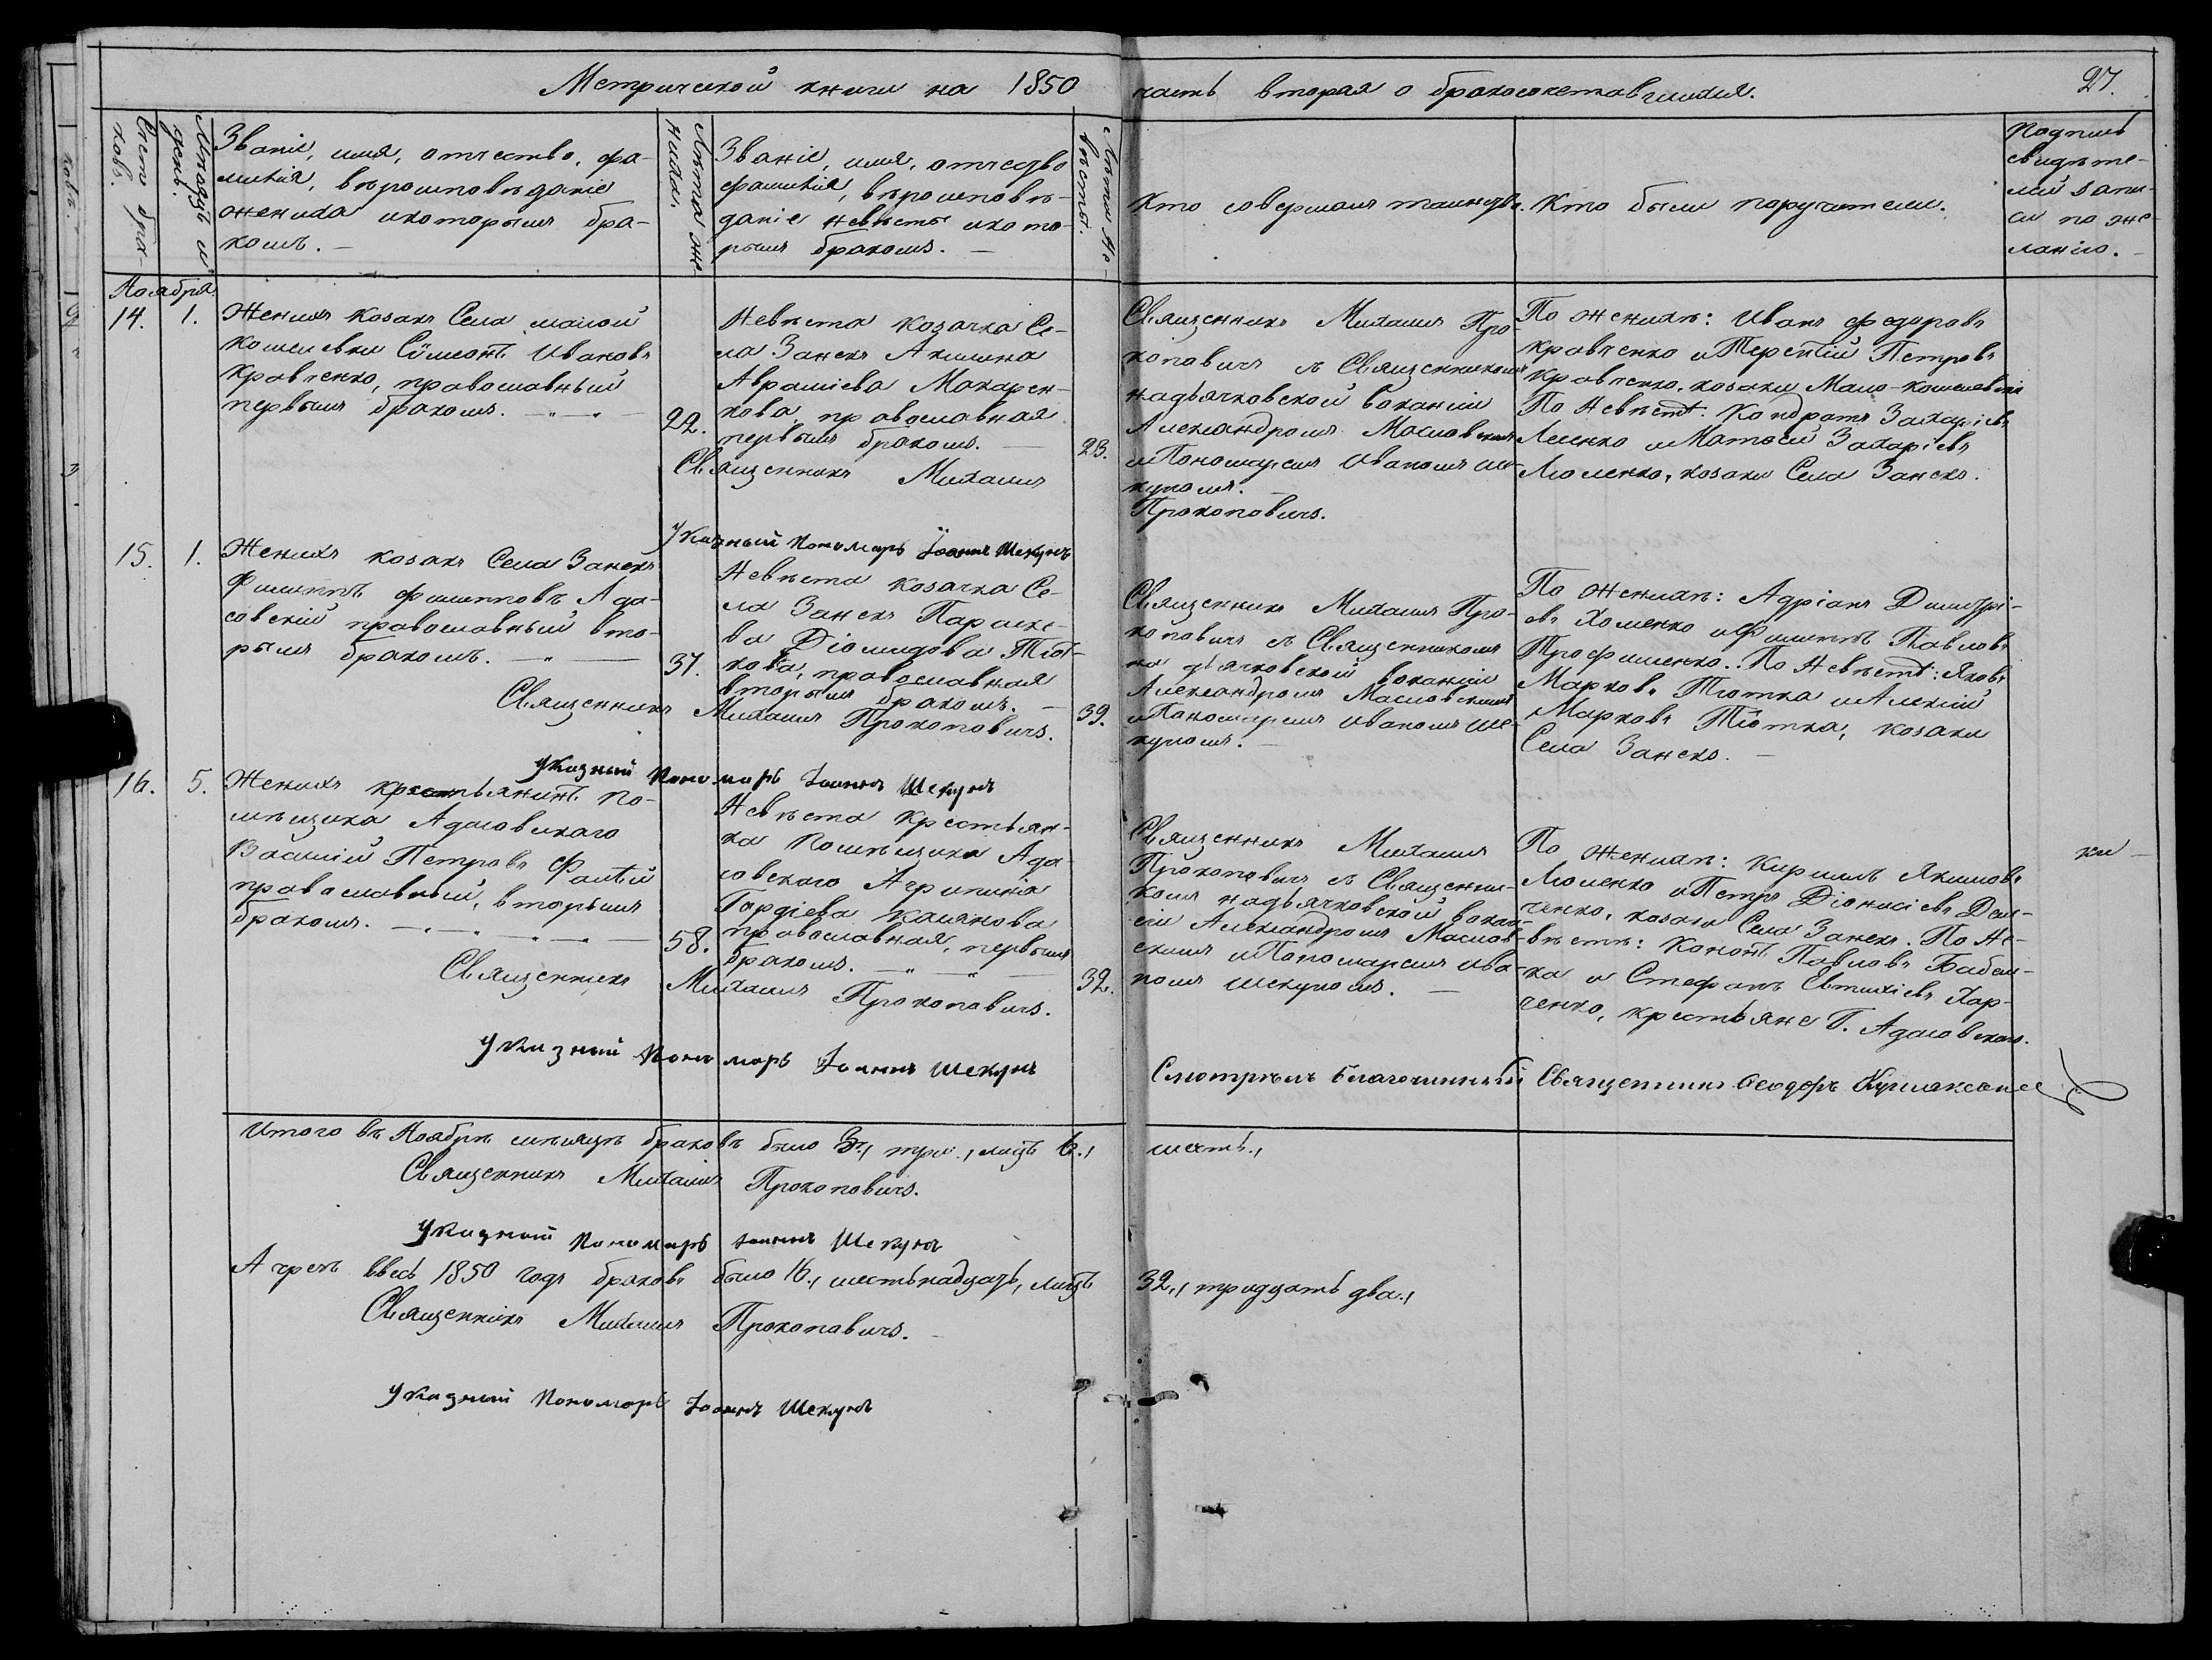 Метрической книги на 1850 часть вторая о бракосочетавшихся.
27.
Счетъ бра-
ковъ.
Мѣсяцъ и
день.
Званіе, имя, отчество, фа-
милія, вѣроисповѣданіе
жениха и которымъ бра-
комъ. —
Лѣта же-
ниха.
Званіе, имя, отчество
фамилія, вѣроисповѣ-
даніе невѣсты и кото-
рымъ бракомъ. —
Лѣта не-
вѣсты.
Кто совершалъ таинство.
Кто были поручатели.
Подпись
свидѣте-
лей запи-
си по же-
ланію. —
Ноября
14.
1.
Женихъ козакъ Села малой
Кошелевки Сѵмеонъ Ивановъ
Кравченко, православный
первымъ бракомъ.
22.
Невѣста козачка Се-
ла Занекъ Акилина
Аврамiева Макарен-
кова православная
первымъ бракомъ. —
23.
Священникъ Михаилъ Про-
коповичъ съ Священникомъ
надьячковской ваканіи
Александромъ Масловскимъ
и Пономаремъ Иваномъ Ше-
куномъ. —
По женихѣ: Иванъ Федоровъ
Кравченко и Терентій Петровъ
Кравченко, козаки Мало-Кошелевскіе
По Невѣстѣ: Кондратъ Захаріевъ
Лиенко и Матвей Захаріевъ
козаки Села Занекъ.
Священникъ Михаилъ
Прокоповичъ.
Указный Пономарь Іоаннъ Шекунъ
15.
1.
Женихъ козакъ Села Занекъ
Филиппъ Филипповъ Ада-
совскій православный вто-
рымъ бракомъ.
37.
Невѣста козачка Се-
ла Занекъ Параске-
ва Діомидова Тют-
кова, православная
вторымъ бракомъ. —
39.
Священникъ Михаилъ Про-
коповичъ съ Священникомъ
на дьячковской ваканіи
Александромъ Масловскимъ
и Пономаремъ Иваномъ Ше-
куномъ. —
По женихѣ: Адріанъ Димитрі-
евъ Хоменко и Филиппъ Павловъ
Трофименко. По Невѣстѣ: Яковъ
Марковъ Тютка и Алексій
Марковъ Тютка, козаки
Села Занекъ. —
Священникъ Михаилъ Прокоповичъ.
Указный Пономарь Іоаннъ Шекунъ
16.
5.
Женихъ крестьянинъ По-
мѣщика Адасовскаго
Василій Петровъ
православный, вторымъ
бракомъ.
58.
Невѣста крестьян-
ка Помѣщика Ада-
совского Агрипина
Гордіева Калянова
православная, первымъ
бракомъ.
32.
Священникъ Михаилъ
Прокоповичъ съ Священни-
комъ надьячковской вакан-
сіи Александромъ Маслов-
скимъ и Пономаремъ Ива-
номъ Шекуномъ. —
По женихѣ: Кирилъ Якимовъ
и Петръ Діонисіевъ Дем-
ченко, козаки Села Занекъ. По Не-
вѣстѣ: Кононъ Павловъ Бабен-
ка и Стефанъ Евтихіевъ Хар-
ченко, крестьяне П. Адасовского.
Священникъ Михаилъ Прокоповичъ.
Указный Пономарь Іоаннъ Шекунъ
Смотрѣлъ благочинный Священникъ Ѳеодоръ
Итого въ Ноябрѣ мѣсяцѣ браковъ было 3., три., лицъ 6., шесть.,
Священникъ Михаилъ Прокоповичъ.
Указный Пономарь Іоаннъ Шекунъ
А чрезъ ввесь 1850 годъ браковъ было 16., шестьнадцать, лицъ 32., тридцать два.,
Священникъ Михаилъ Прокоповичъ.
Указный Пономарь Іоаннъ Шекунъ